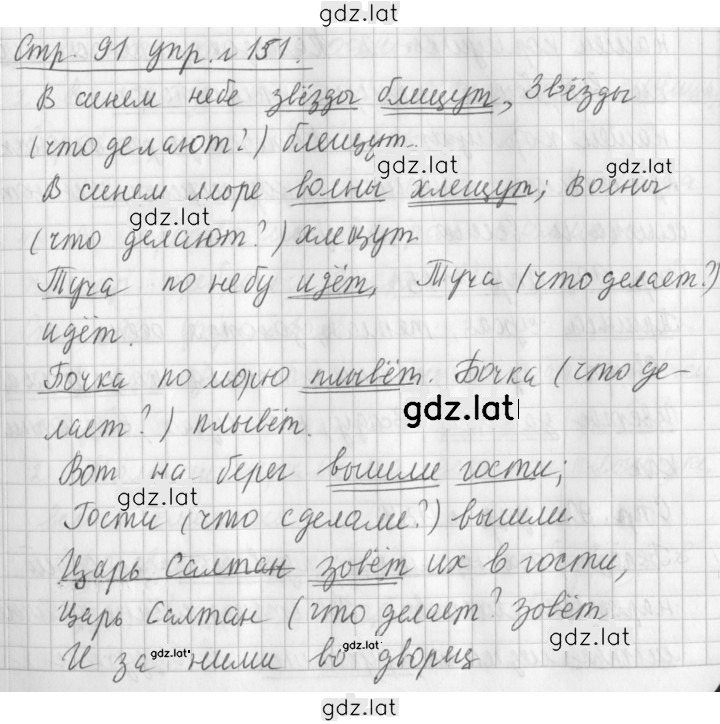 gdz.lat
Стр. 91 упр. 151.
В синем небе звёзды блищут, Звёзды
(что делают?) блещут.
gdz.lat
gdz.lat
В синем море волны хлещут; Волны
gdz.lat
(что делают?) хлещут
Туча по небу идёт, Туча (что делает?)
идёт.
Бочка по морю плывёт. Бочка (что де-
gdz.lat
лает?) плывёт.
Вот на берег вышли гости;
gdz.lat
Гости (что сделали?) вышли.
Царь Салтан зовёт их в гости,
Царь Салтан (что делает? зовёт
gdz.lat
И за ними во дворец
gdz.lat
gdz.lat
gdz.lat